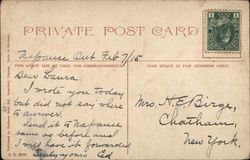 PRIVATE POST CARD
Napanee Ont Feb 7/15
THIS SPACE MAY BE USED FOR CORRESPONDENCE
THIS SPACE IS FOR ADDRESS ONLY
Dear Laura.
I wrote you today
but did not say where
to answer.
Send it to Napanee
same as before and
I will have it forwarded
Ed
Mrs. H. E. Birge,
Chatham,
New York.